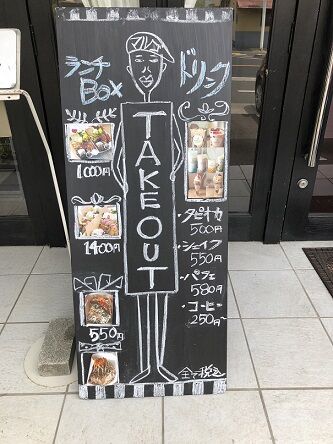 マルハ
ランチ
BOX
ドリンク
TAKE OUT
1000円
1400円
550円
・タピオカ
500円
・シェイク
550円
・パフェ
580円
・コーヒー
250円~
全て税込